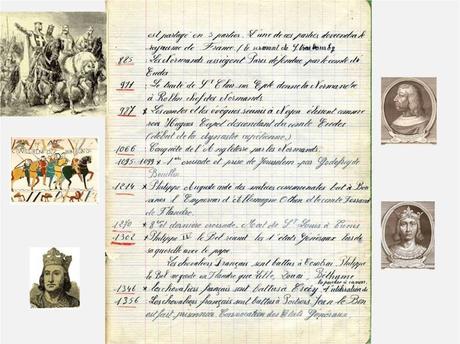 est partagé en 3 parties. L'une de ces parties deviendra le
royaume de France, (le serment de
885 Les Normands assiègent Paris défendue par le comte de
Eudes
911 Le traité de St Clair sur Epte donne la Normandie
à Rollon chef des Normands.
987 * Les comtes et les évêques réunis à Noyon élisent comme
roi Hugues Capet descendant du comte Eudes
(début de la dynastie capétienne)
1066 Conquête de l'Angleterre par les Normands.
1095-1099 * 1ère croisade et prise de Jérusalem par Godefroy de
Bouillon
1214 * Philippe Auguste aidé des milices communales bat à Bou
vines l'Empereur d'Allemagne Othon et le comte Ferrand
de Flandre.
1270 * 8e et dernière croisade. Mort de St Louis à Tunis
1302 * Philippe IV le Bel réunit les 1ers états généraux lors de
sa querelle avec le pape.
Les chevaliers français sont battus à Courtrai. Philippe
le Bel Flandre que Lille, Douai, Béthune
1346 * Les chevaliers français sont battus à Crécy
1356 * Les chevaliers français sont battus à Poitiers. Jean le Bon
est fait prisonnier. Convocation des Etats Généraux